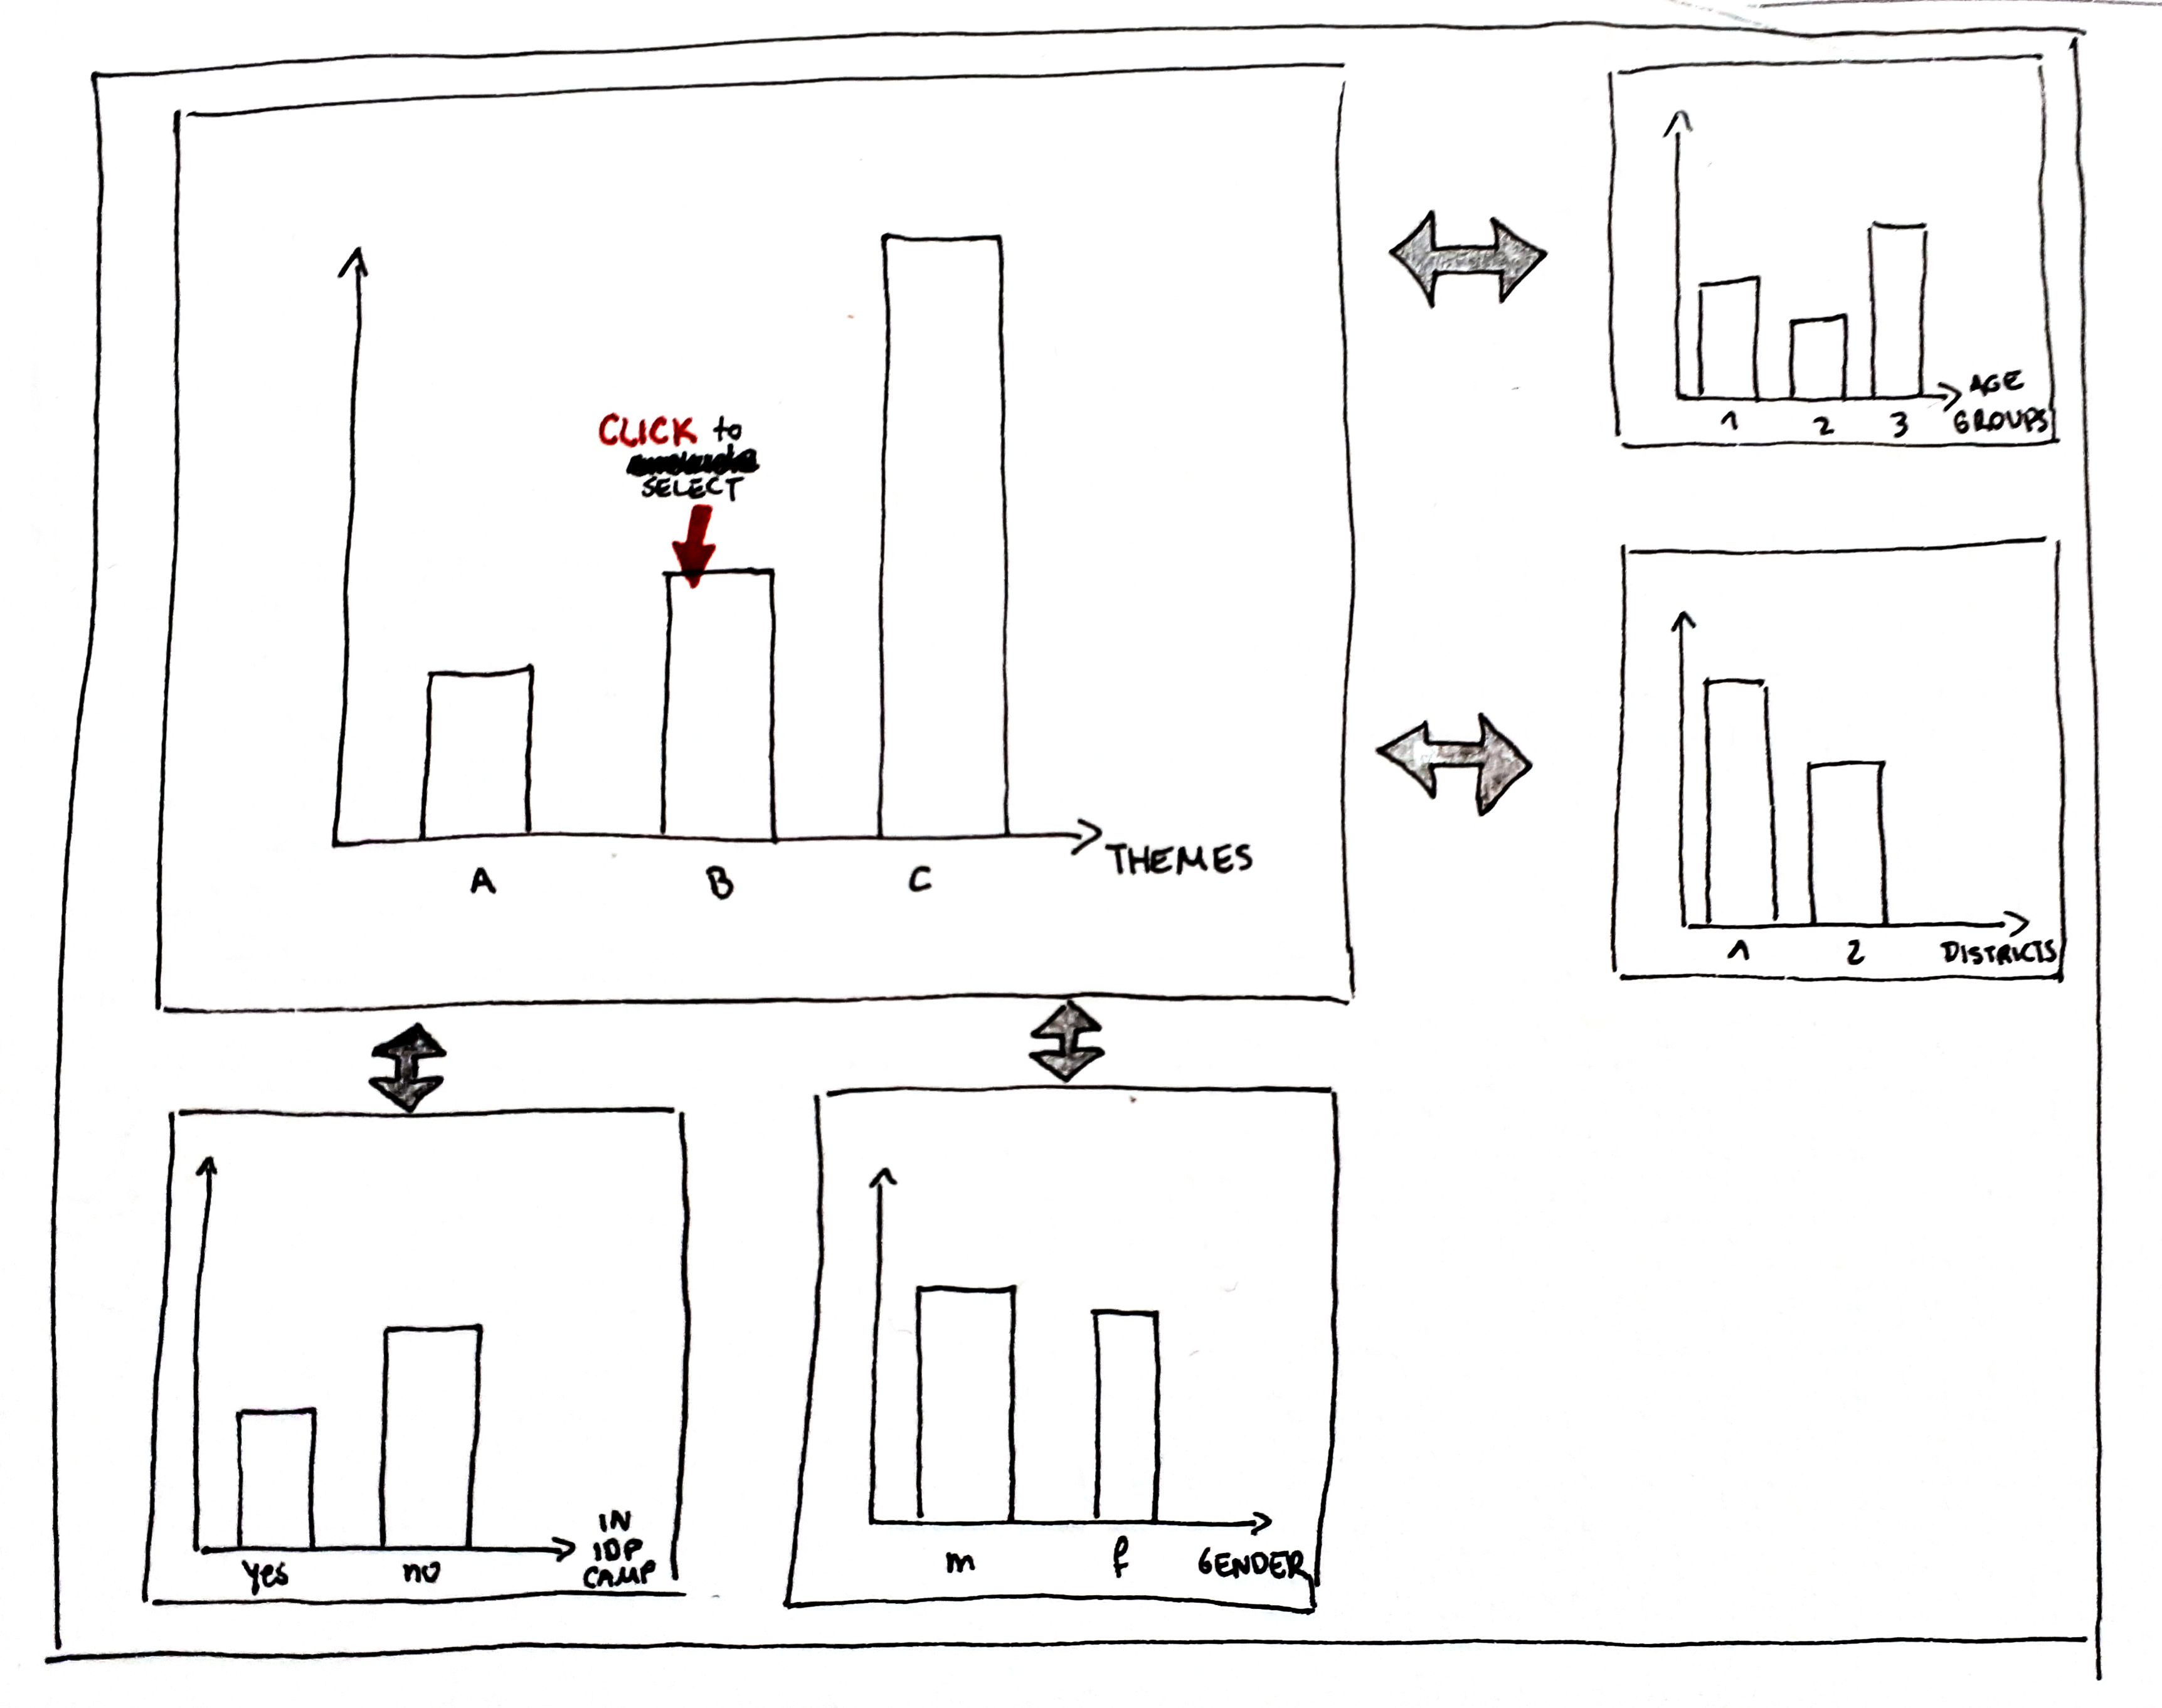 CLICK to
SELECT
A B C
THEMES
1 2 3
AGE
GROUPS
1 2 DISTRICTS
yes no
IN
IDP
CAMP
m f GENDER